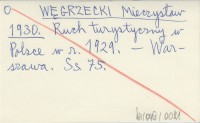 WĘGRZECKI Mieczysław
1930. Ruch turystyczny w
Polsce w r. 1929. — War-
szawa. Ss 75.